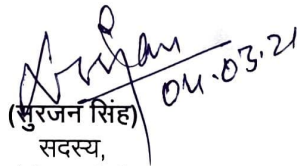 04.03.21
(सुरजन सिंह)
सदस्य,